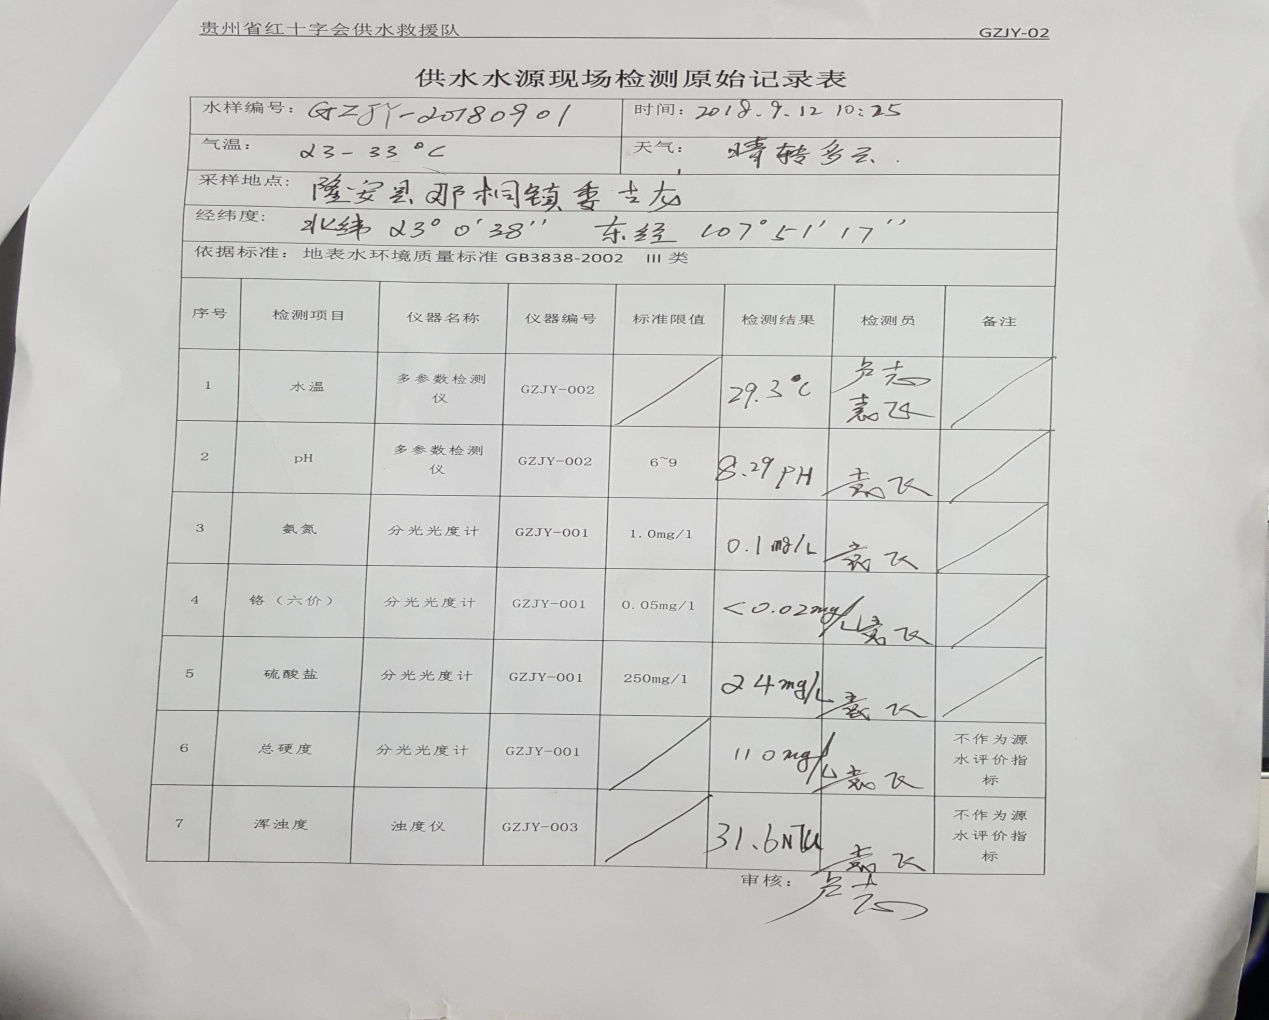 贵州省红十字会供水救援队 GZJY-02
供水水源现场检测原始记录表
水样编号: GZJY-20180901 时间: 2018.9.12 10:25
气温: 23-33°C 天气: 晴转多云.
采样地点: 隆安县那桐镇
经纬度: 北纬 23°0'38" 东经 107°51'17"
依据标准: 地表水环境质量标准 GB3838-2002 III 类
序号 检测项目 仪器名称 仪器编号 标准限值 检测结果 检测员 备注
1 水温 多参数检测仪 GZJY-002 29.3°C
2 pH 多参数检测仪 GZJY-002 6~9 8.29 PH
3 氨氮 分光光度计 GZJY-001 1.0mg/l 0.1mg/L
4 铬（六价） 分光光度计 GZJY-001 0.05mg/l <0.02mg/L
5 硫酸盐 分光光度计 GZJY-001 250mg/l 24mg/L
6 总硬度 分光光度计 GZJY-001 110mg/L 不作为源水评价指标
7 浑浊度 浊度仪 GZJY-003 31.6NTU 不作为源水评价指标
审核: